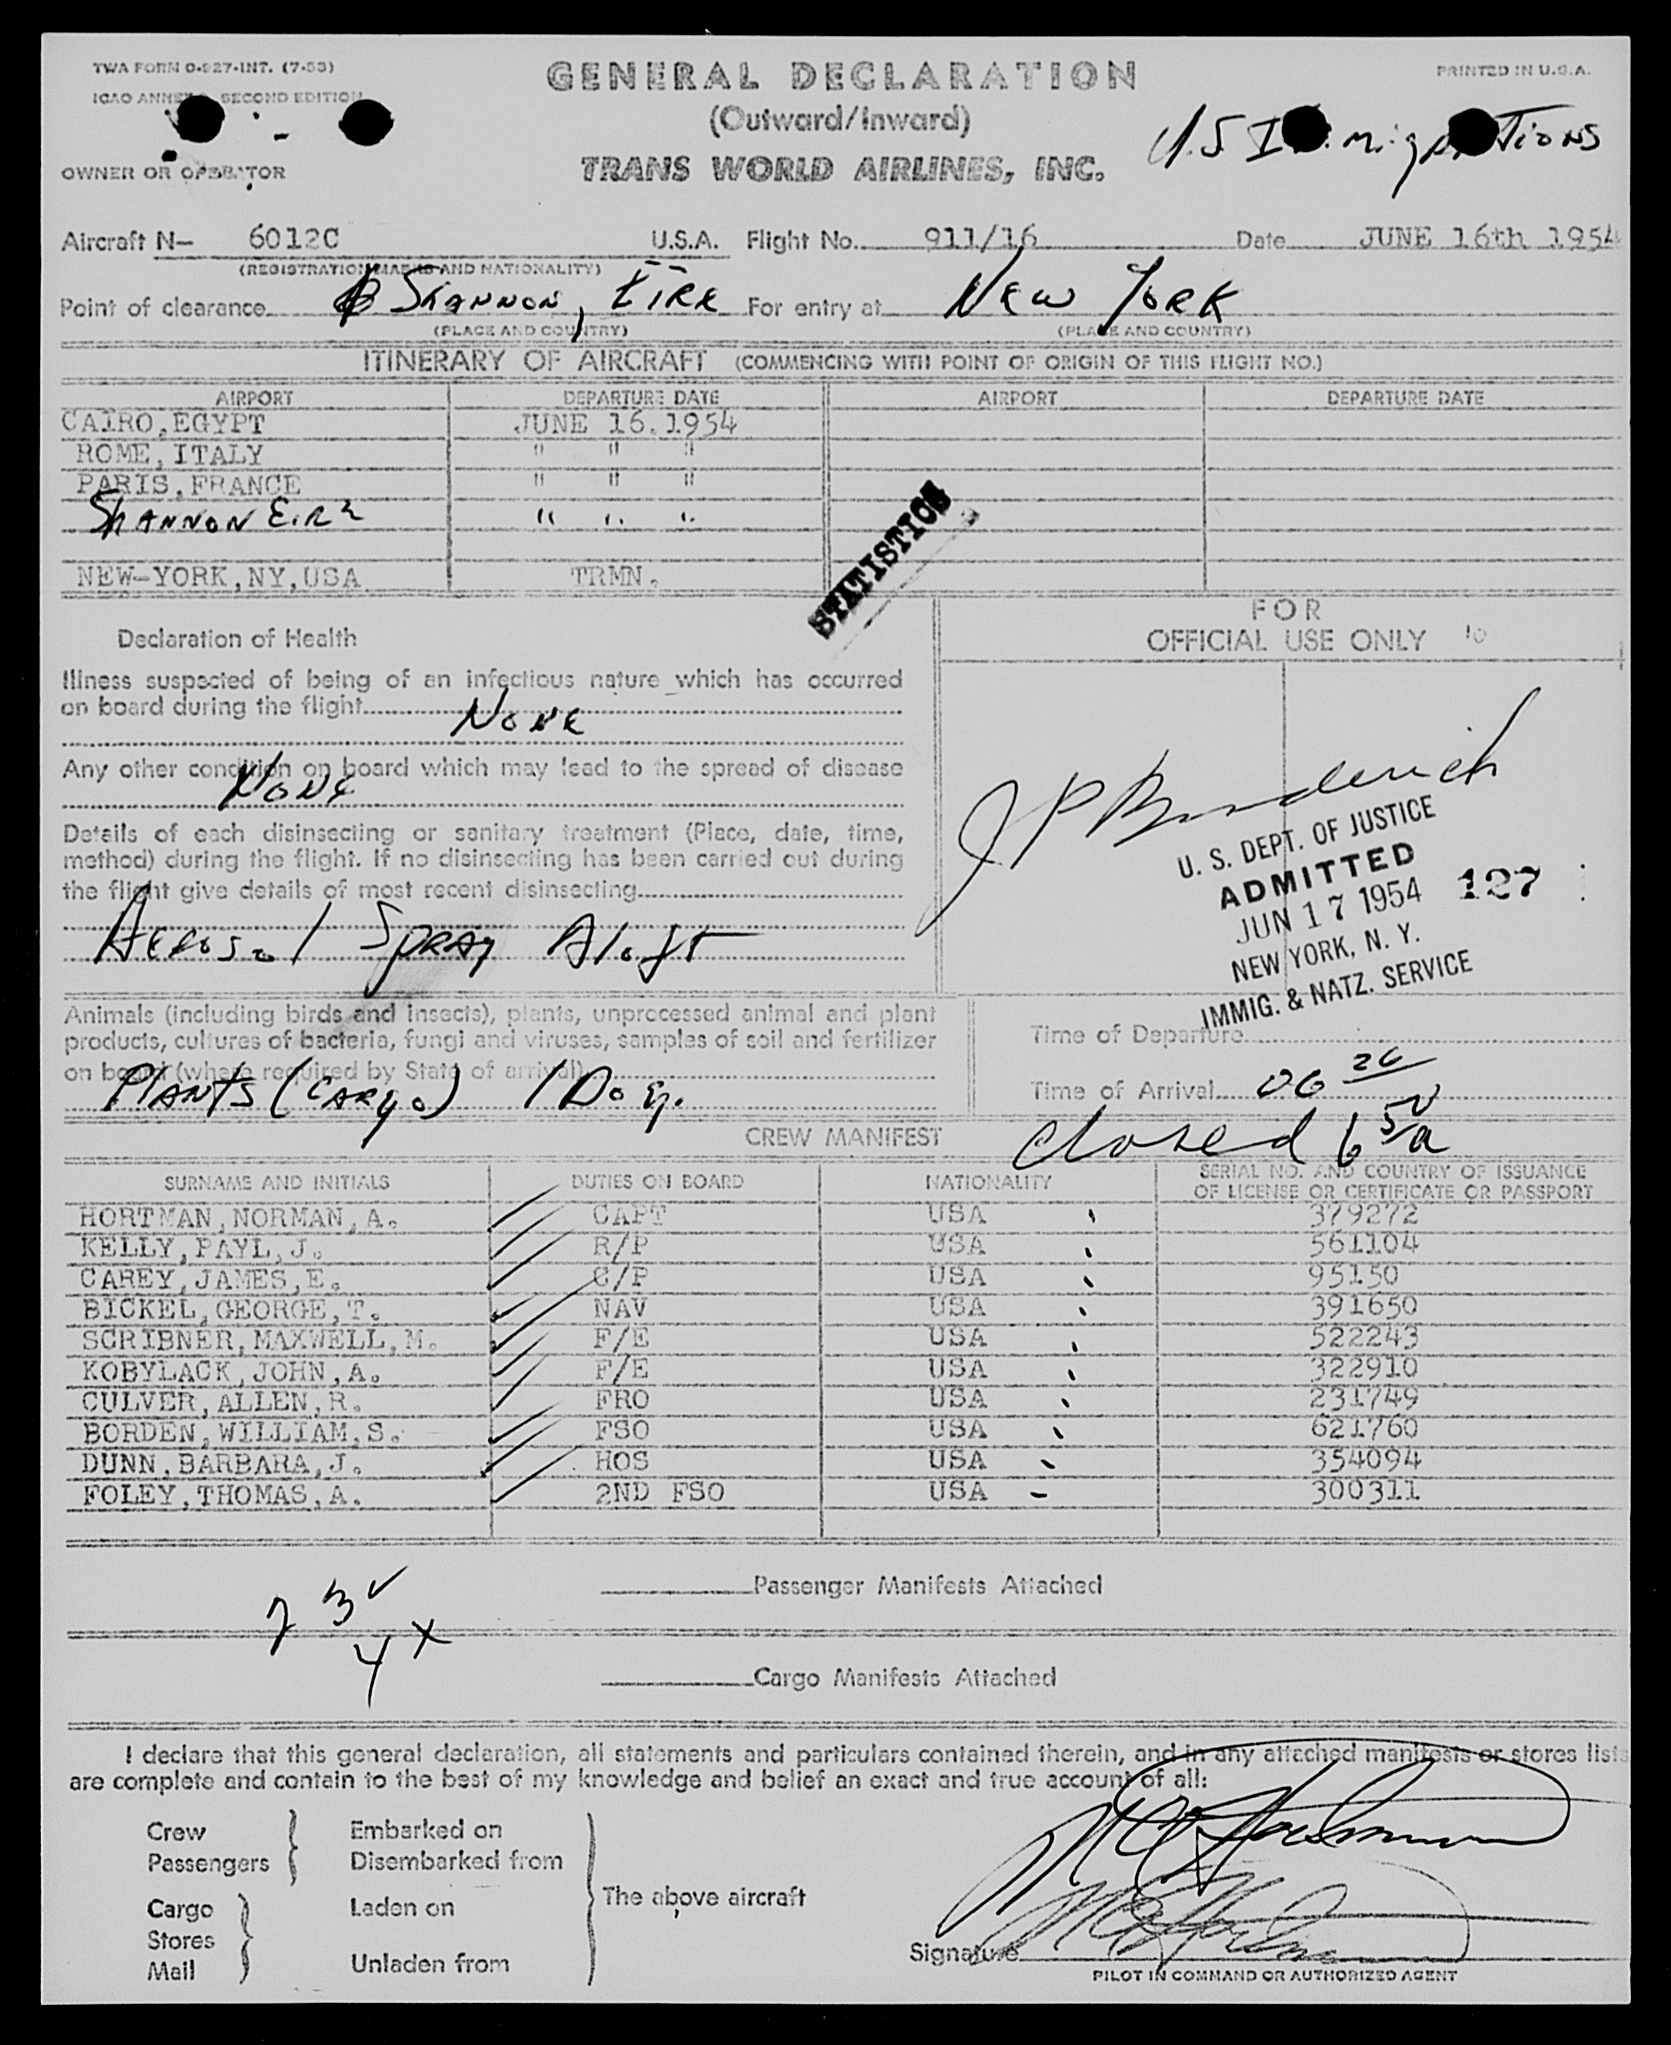 TWA FORM O-927-INT. (7-53)
GENERAL DECLARATION
PRINTED IN U.S.A.
ICAO ANNEX SECOND EDITION
(Outward/Inward)
U.S. Immigrations
OWNER OR OPERATOR
TRANS WORLD AIRLINES, INC.
Aircraft N— 6012C U.S.A. Flight No. 911/16 Date JUNE 16th 1954
(REGISTRATION MARKS AND NATIONALITY)
Point of clearance SHANNON, EIRE For entry at NEW YORK
(PLACE AND COUNTRY) (PLACE AND COUNTRY)
ITINERARY OF AIRCRAFT (COMMENCING WITH POINT OF ORIGIN OF THIS FLIGHT NO.)
AIRPORT DEPARTURE DATE AIRPORT DEPARTURE DATE
CAIRO,EGYPT JUNE 16.1954
ROME,ITALY " " "
PARIS,FRANCE " " "
SHANNON EIRE " " "
NEW-YORK,NY,USA TRMN.
STATISTICS
FOR
OFFICIAL USE ONLY 10
Declaration of Health
Illness suspected of being of an infectious nature which has occurred
on board during the flight NONE
Any other condition on board which may lead to the spread of disease
NONE
Details of each disinsecting or sanitary treatment (Place, date, time,
method) during the flight. If no disinsecting has been carried out during
the flight give details of most recent disinsecting
Aerosol Spray Aloft
J P Broderick
U. S. DEPT. OF JUSTICE
ADMITTED
JUN 17 1954 127
NEW YORK, N. Y.
IMMIG. & NATZ. SERVICE
Animals (including birds and insects), plants, unprocessed animal and plant
products, cultures of bacteria, fungi and viruses, samples of soil and fertilizer
on board (where required by State of arrival)
PLANTS (CARGO) 1 Dog.
Time of Departure
Time of Arrival 06 26
closed 6 50 a
CREW MANIFEST
SURNAME AND INITIALS DUTIES ON BOARD NATIONALITY SERIAL NO. AND COUNTRY OF ISSUANCE
OF LICENSE OR CERTIFICATE OR PASSPORT
HORTMAN,NORMAN,A. CAPT USA 379272
KELLY,PAYL,J. R/P USA 561104
CAREY,JAMES,E. C/P USA 95150
BICKEL,GEORGE,T. NAV USA 391650
SCRIBNER,MAXWELL,M. F/E USA 522243
KOBYLACK,JOHN,A. F/E USA 322910
CULVER,ALLEN,R. FRO USA 231749
BORDEN,WILLIAM,S. FSO USA 621760
DUNN,BARBARA,J. HOS USA 354094
FOLEY,THOMAS,A. 2ND FSO USA 300311
Passenger Manifests Attached
4 X
Cargo Manifests Attached
I declare that this general declaration, all statements and particulars contained therein, and in any attached manifests or stores lists
are complete and contain to the best of my knowledge and belief an exact and true account of all:
Crew Embarked on
Passengers Disembarked from
The above aircraft
Cargo Laden on
Stores
Mail Unladen from
Signature
PILOT IN COMMAND OR AUTHORIZED AGENT